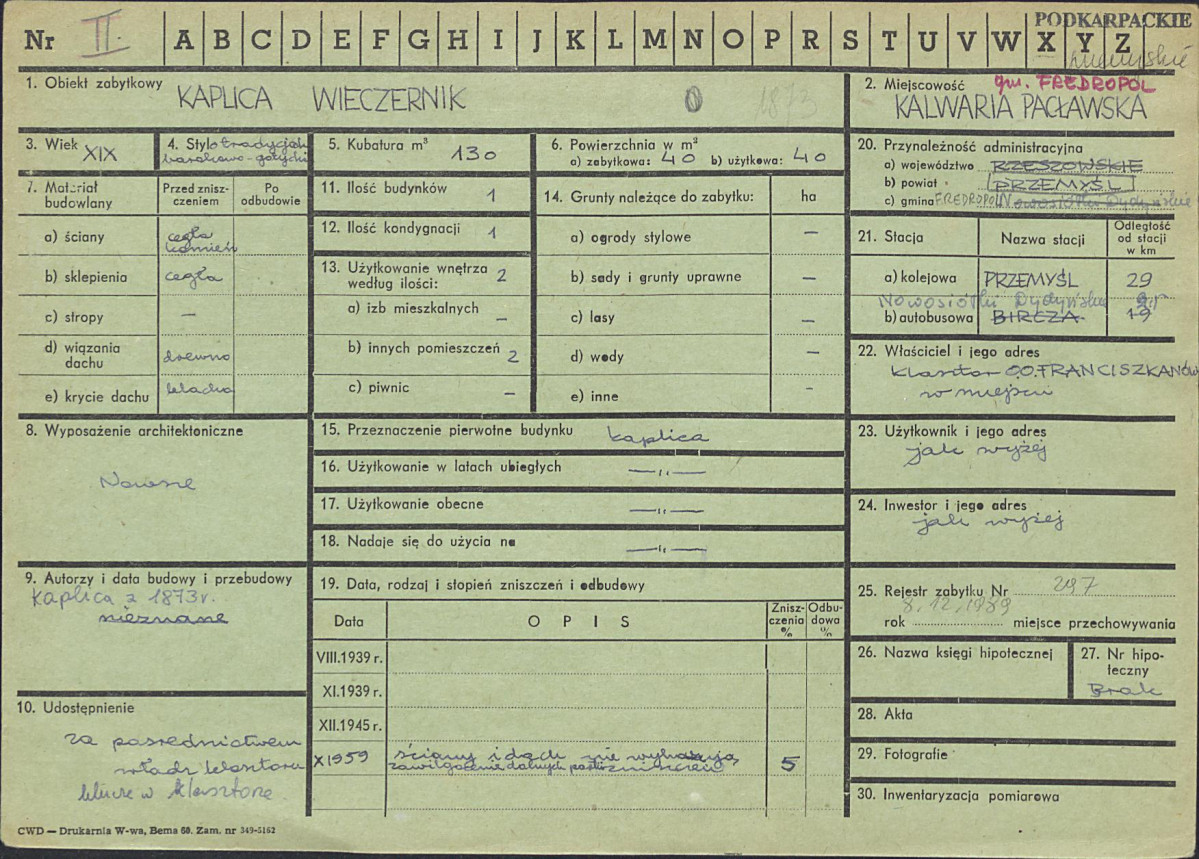 PODKARPACKIE
Nr II. A B C D E F G H I J K L M N O P R S T U V W X Y Z
1. Obiekt zabytkowy
KAPLICA WIECZERNIK
1873
2. Miejscowość gm. FREDROPOL
KALWARIA PACŁAWSKA
3. Wiek XIX
4. Styl
5. Kubatura m³ 130
6. Powierzchnia w m²
a) zabytkowa: 40 b) użytkowa: 40
20. Przynależność administracyjna
a) województwo RZESZOWSKIE
b) powiat PRZEMYŚL
c) gmina FREDROPOL Nowosiółki Dydyńskie
7. Materiał budowlany
Przed zniszczeniem
Po odbudowie
a) ściany cegła kamień
b) sklepienia cegła
c) stropy —
d) wiązania dachu drewno
e) krycie dachu blacha
11. Ilość budynków 1
12. Ilość kondygnacji 1
13. Użytkowanie wnętrza według ilości: 2
a) izb mieszkalnych —
b) innych pomieszczeń 2
c) piwnic —
14. Grunty należące do zabytku: ha
a) ogrody stylowe —
b) sady i grunty uprawne —
c) lasy —
d) wody —
e) inne -
21. Stacja
Nazwa stacji
Odległość od stacji w km
a) kolejowa PRZEMYŚL 29
Nowosiółki Dydyńskie
b) autobusowa BIRCZA 19
22. Właściciel i jego adres
klasztor O.O. FRANCISZKANÓW
w miejscu
8. Wyposażenie architektoniczne
Nowsze
15. Przeznaczenie pierwotne budynku kaplica
16. Użytkowanie w latach ubiegłych —„—
17. Użytkowanie obecne —„—
18. Nadaje się do użycia na —„—
23. Użytkownik i jego adres
jak wyżej
24. Inwestor i jego adres
jak wyżej
9. Autorzy i data budowy i przebudowy
Kaplica z 1873 r.
nieznane
19. Data, rodzaj i stopień zniszczeń i odbudowy
Data
OPIS
Zniszczenia %
Odbudowa %
VIII.1939 r.
XI.1939 r.
XII.1945 r.
X 1959 ściany i dach nie wykazują
5
25. Rejestr zabytku Nr 297
8.12.1989
rok miejsce przechowywania
26. Nazwa księgi hipotecznej
27. Nr hipoteczny
Brak
10. Udostępnienie
za pośrednictwem
władz klasztoru
klucze w klasztorze
28. Akta
29. Fotografie
30. Inwentaryzacja pomiarowa
CWD — Drukarnia W-wa, Bema 60. Zam. nr 349-5162